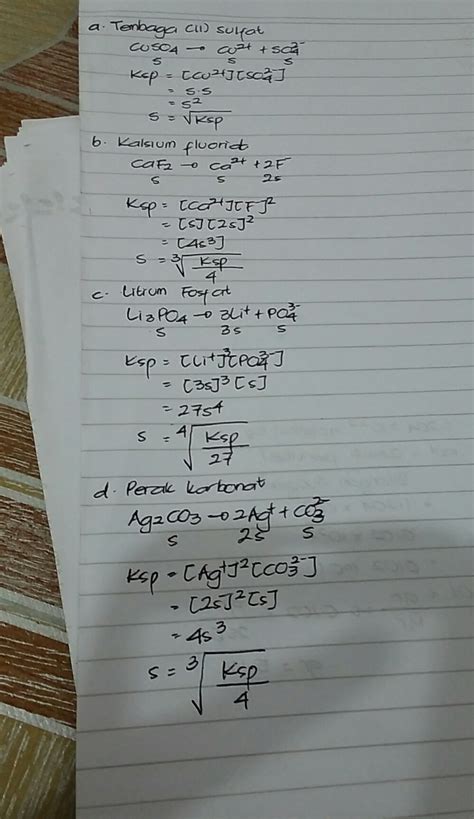 a. Tembaga (II) sulfat
CuSO4 → Cu²⁺ + SO4²⁻
s s s
Ksp = [Cu²⁺][SO4²⁻]
= s.s
= s²
s = √Ksp
b. Kalsium fluorid
CaF2 → Ca²⁺ + 2F⁻
s s 2s
Ksp = [Ca²⁺][F⁻]²
= [s][2s]²
= [4s³]
s = ³√(Ksp/4)
c. Litium Fosfat
Li3PO4 → 3Li⁺ + PO4³⁻
s 3s s
Ksp = [Li⁺]³[PO4³⁻]
= [3s]³[s]
= 27s⁴
s = ⁴√(Ksp/27)
d. Perak karbonat
Ag2CO3 → 2Ag⁺ + CO3²⁻
s 2s s
Ksp = [Ag⁺]²[CO3²⁻]
= [2s]²[s]
= 4s³
s = ³√(Ksp/4)